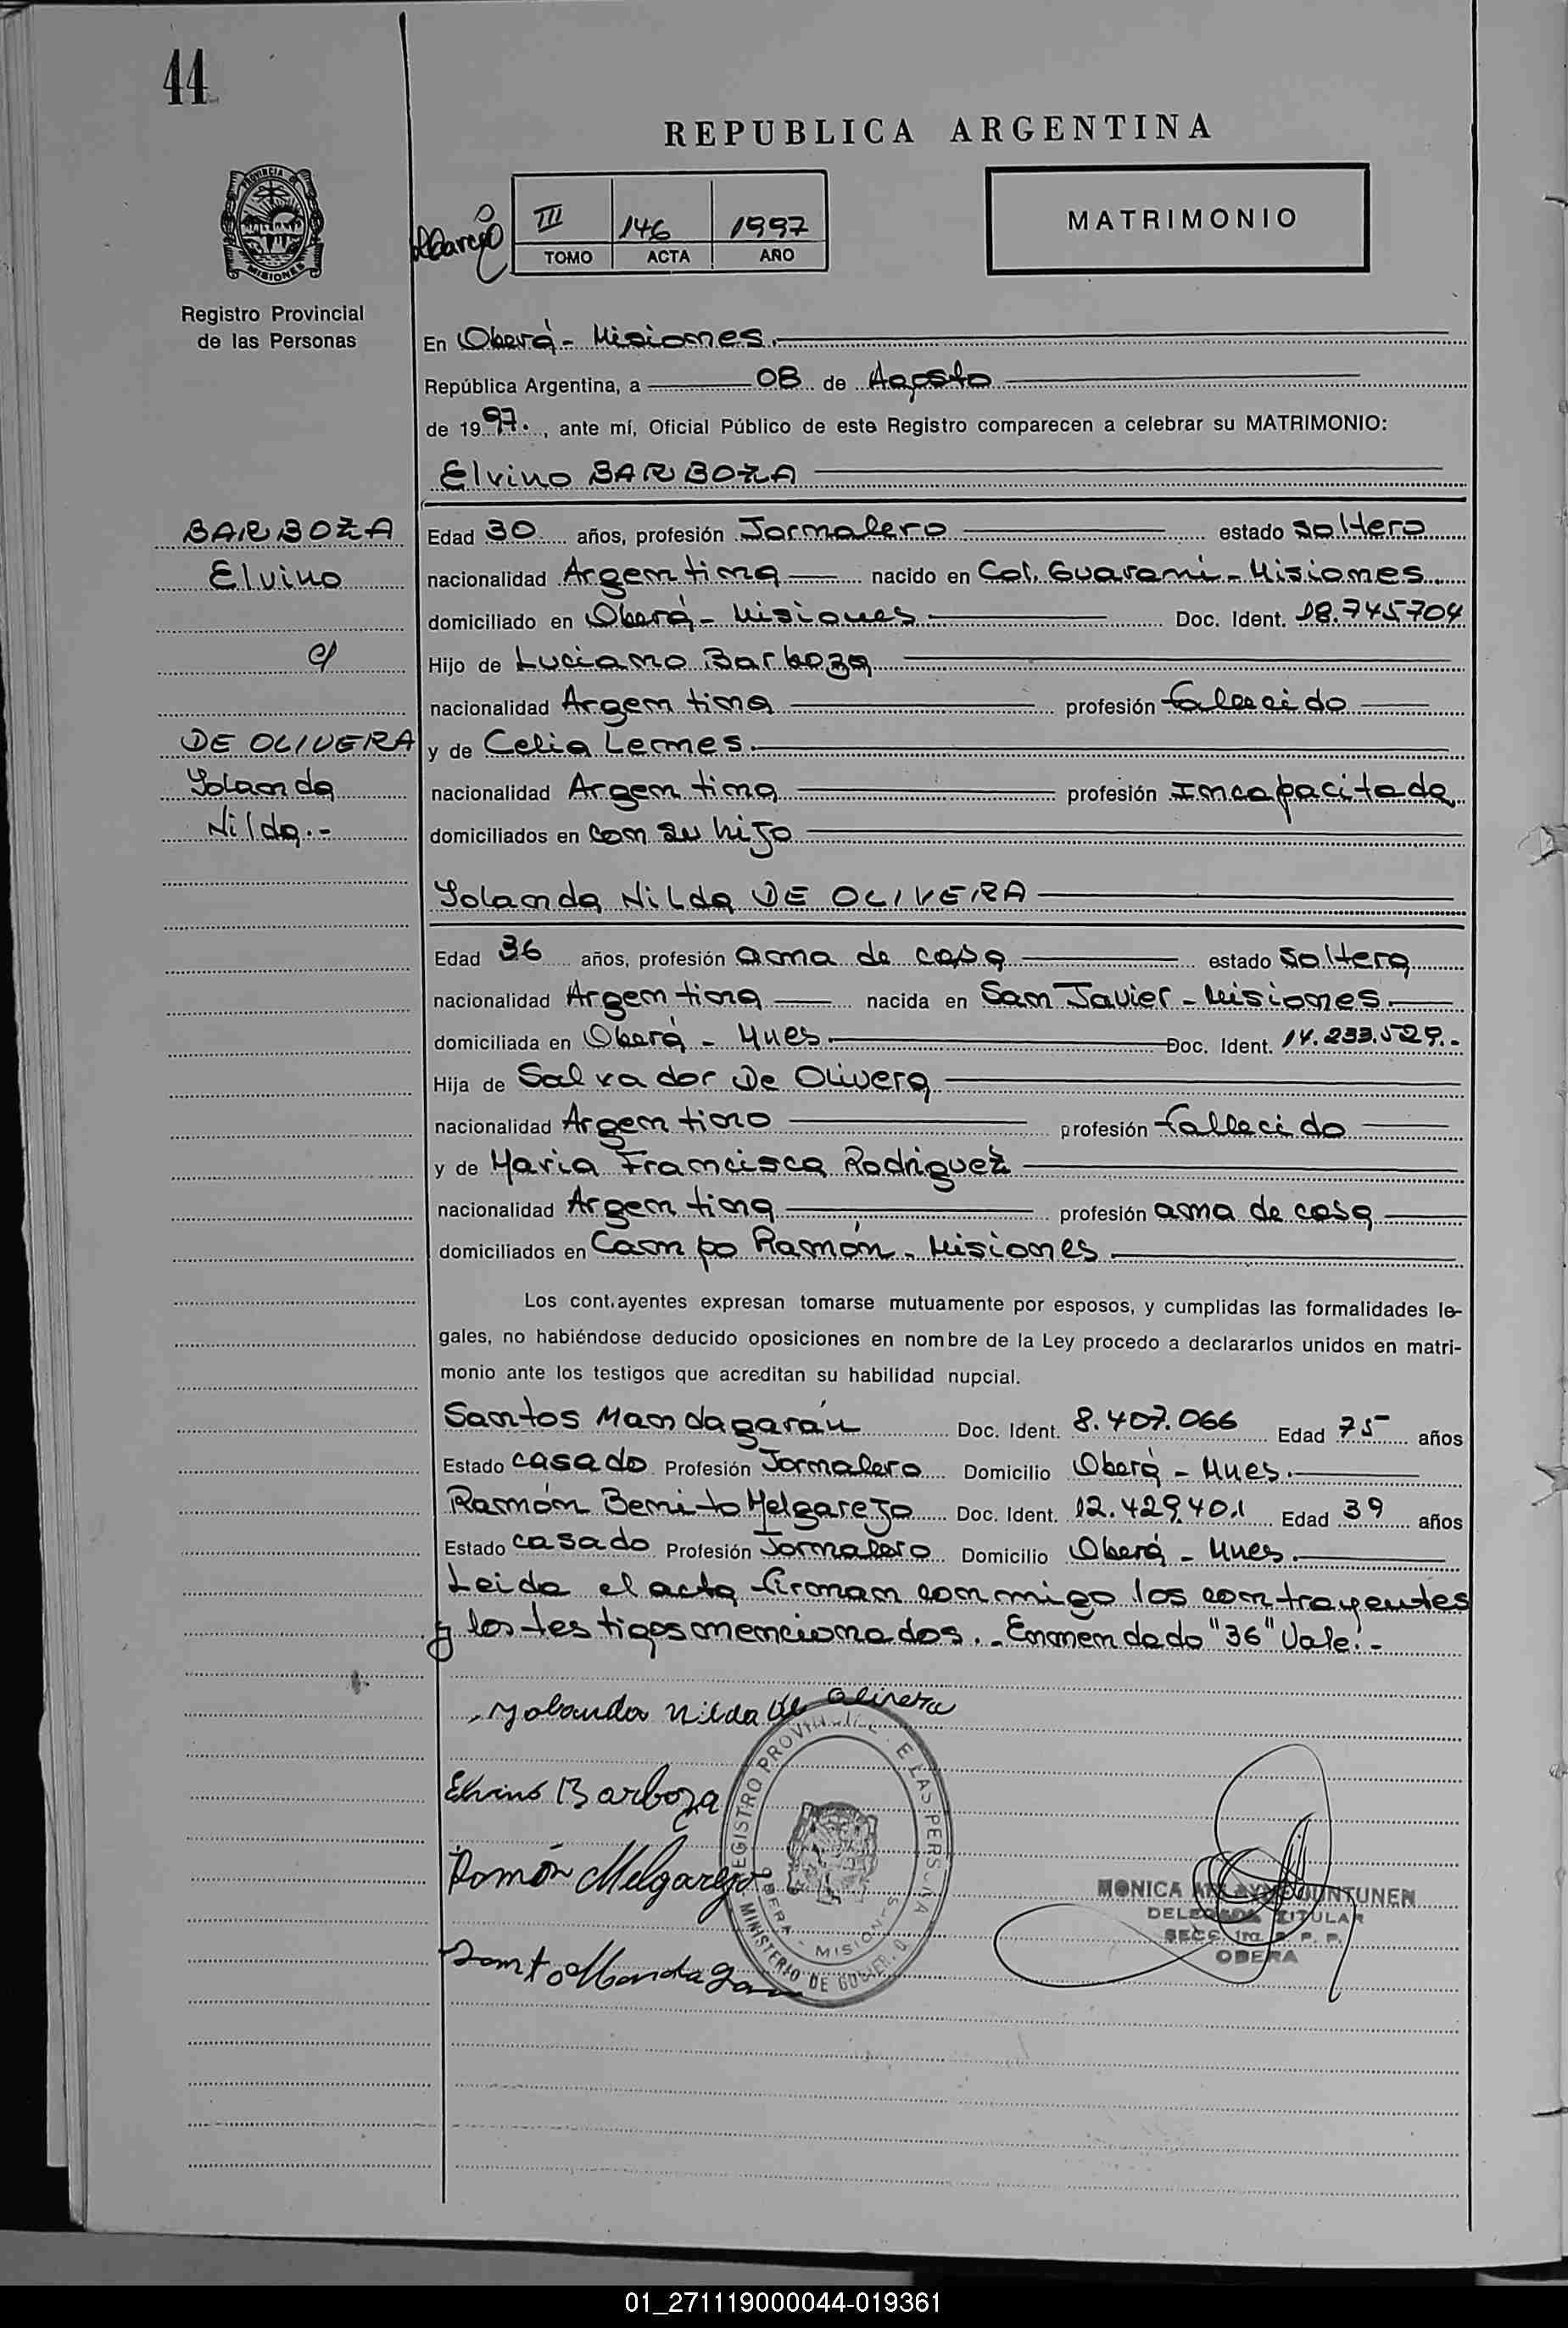 44
REPUBLICA ARGENTINA
PROVINCIA DE
MISIONES
Registro Provincial
de las Personas
III 146 1997
TOMO ACTA AÑO
MATRIMONIO
En Oberá - Misiones.
República Argentina, a 08 de Agosto
de 1997., ante mí, Oficial Público de este Registro comparecen a celebrar su MATRIMONIO:
Elvino BARBOZA
BARBOZA
Elvino
c/
DE OLIVERA
Yolanda
Nilda.-
Edad 30 años, profesión Jornalero estado soltero
nacionalidad Argentina nacido en Col. Guaraní - Misiones
domiciliado en Oberá - Misiones Doc. Ident. 18.745704
Hijo de Luciano Barboza
nacionalidad Argentina profesión fallecido
y de Celia Lemes.
nacionalidad Argentina profesión Incapacitada
domiciliados en con su hijo
Yolanda Nilda DE OLIVERA
Edad 36 años, profesión ama de casa estado soltera
nacionalidad Argentina nacida en San Javier - Misiones.
domiciliada en Oberá - Mnes. Doc. Ident. 14.233.529.-
Hija de Salvador De Olivera
nacionalidad Argentino profesión fallecido
y de Maria Francisca Rodriguez
nacionalidad Argentina profesión ama de casa
domiciliados en Campo Ramón - Misiones
Los cont.ayentes expresan tomarse mutuamente por esposos, y cumplidas las formalidades le-
gales, no habiéndose deducido oposiciones en nombre de la Ley procedo a declararlos unidos en matri-
monio ante los testigos que acreditan su habilidad nupcial.
Santos Mandagarán Doc. Ident. 8.407.066 Edad 75 años
Estado casado Profesión Jornalero Domicilio Oberá - Mnes.
Ramón Benito Melgarejo Doc. Ident. 12.429.401 Edad 39 años
Estado casado Profesión Jornalero Domicilio Oberá - Mnes.
Leida el acta firman conmigo los contrayentes
y los testigos mencionados. - Enmendado "36" Vale.-
Yolanda Nilda de Olivera
Elvino Barboza
Ramón Melgarejo
REGISTRO PROVINCIAL DE LAS PERSONAS
OBERA - MISIONES
MINISTERIO DE GOBIERNO
MONICA
DELEGADA TITULAR
SECC. 1ra. R. P. P.
OBERA
01_271119000044-019361